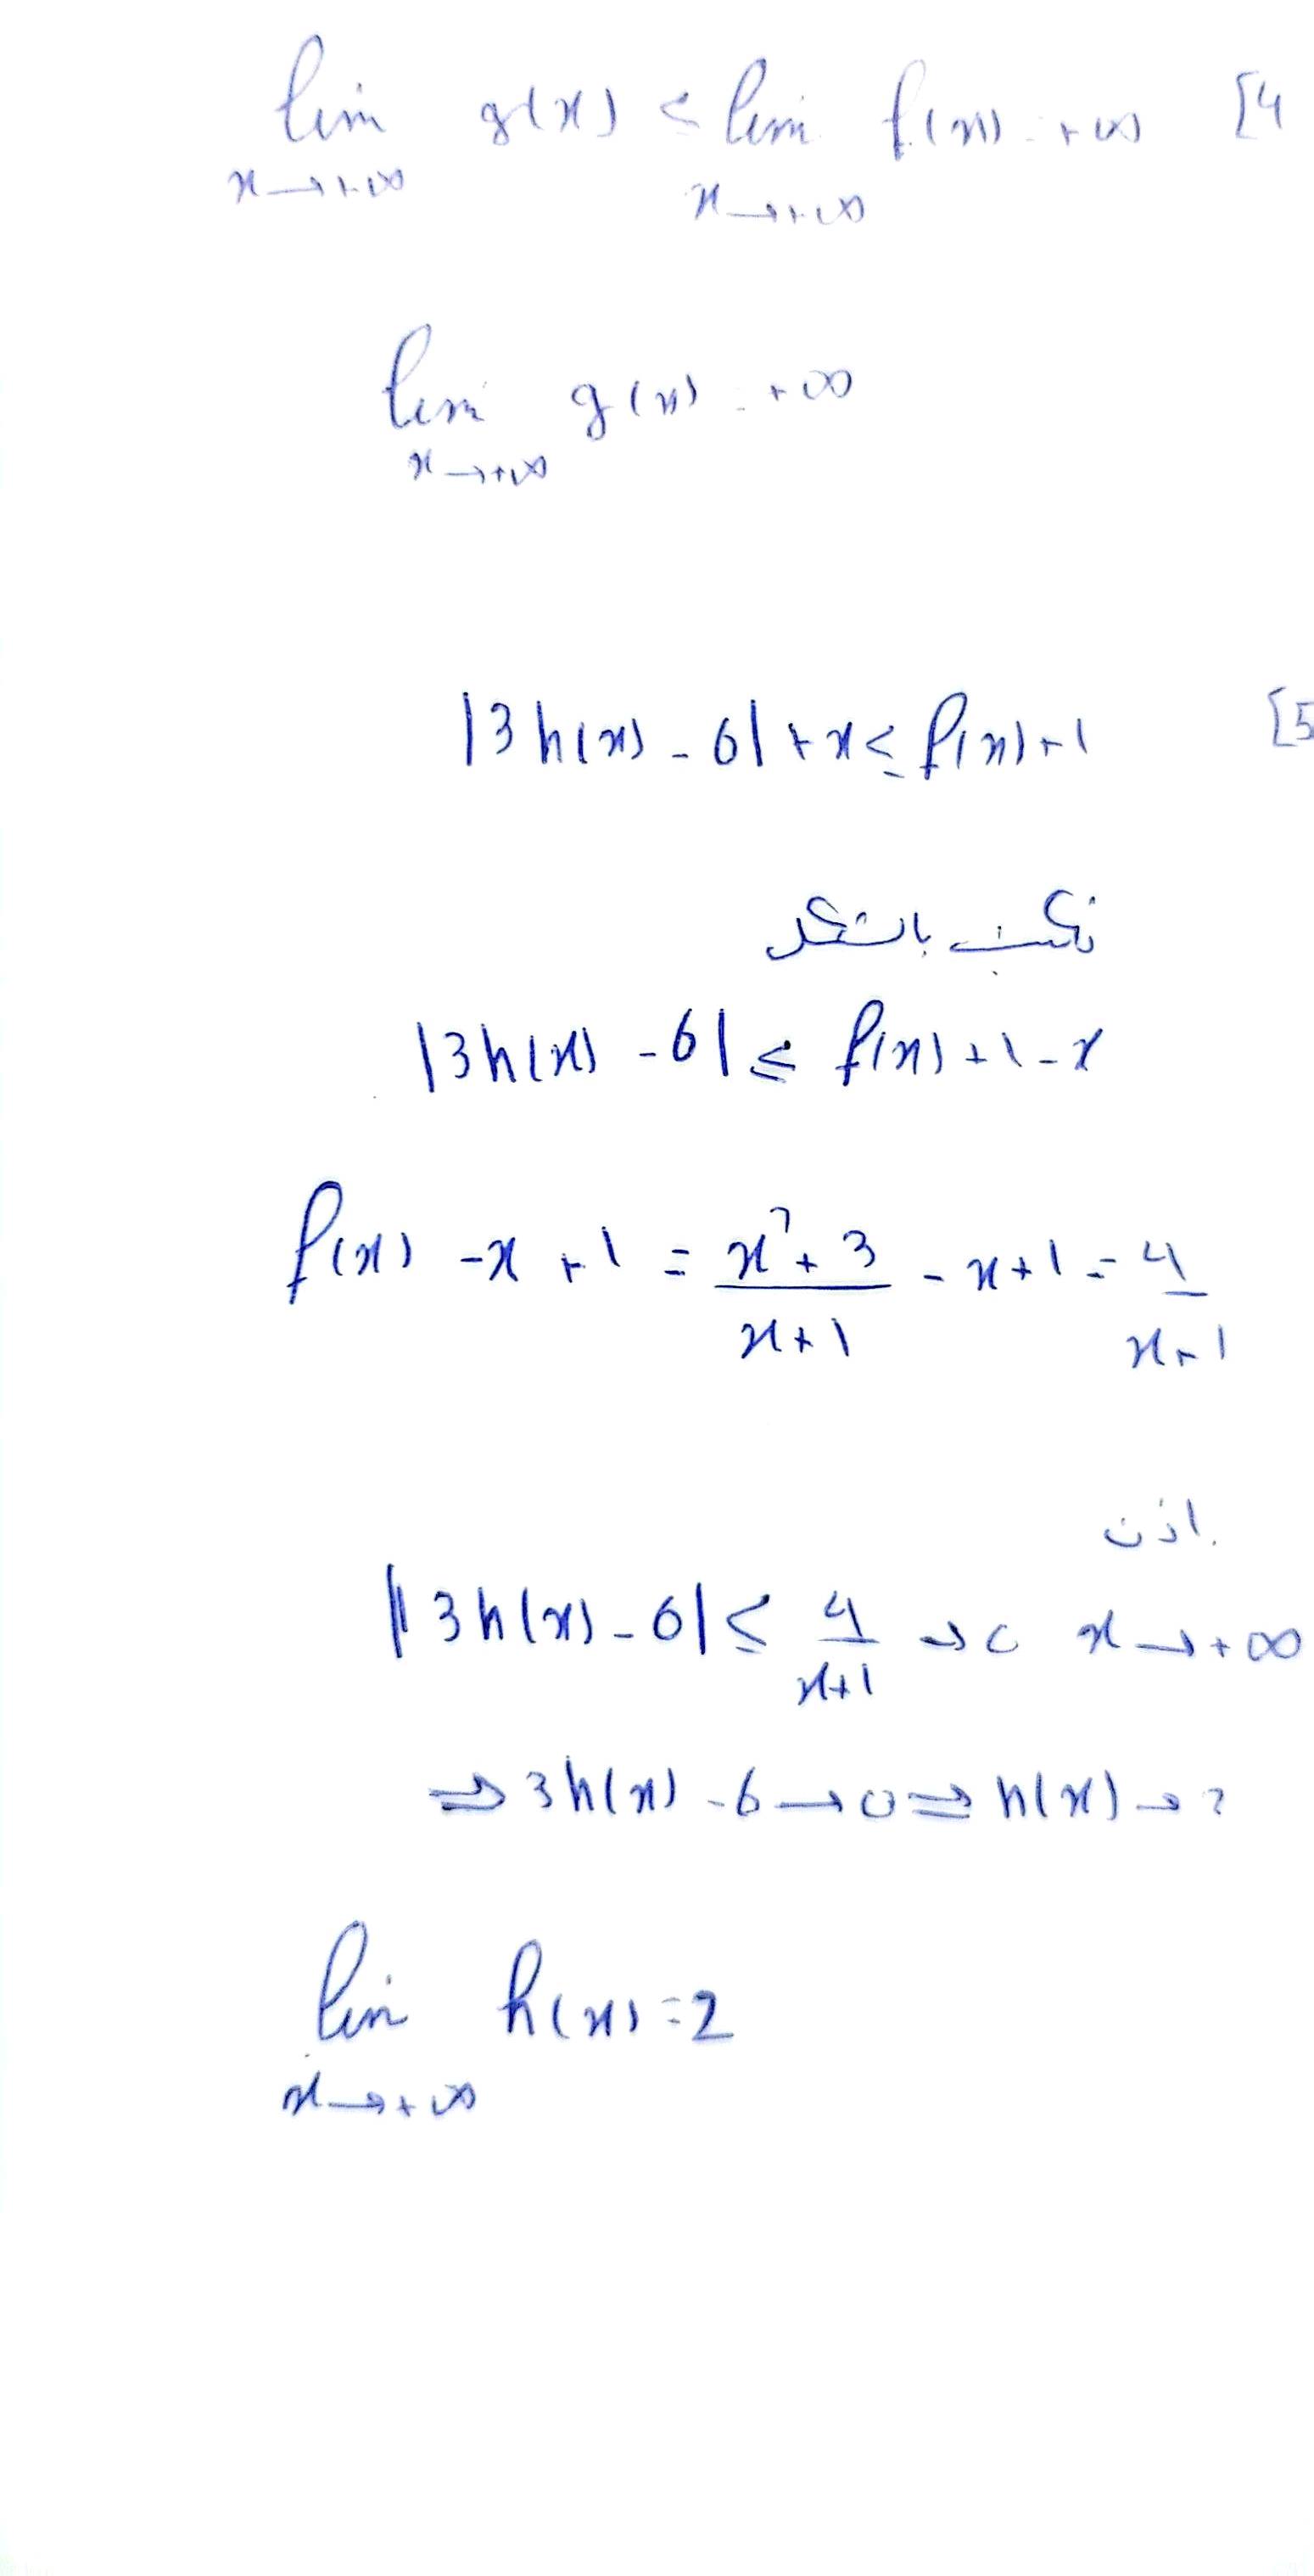 [4 lim g(x) ≤ lim f(x) = +∞
x→+∞ x→+∞
lim g(x) = +∞
x→+∞
[5 |3h(x) - 6| + x ≤ f(x) + 1
نكتب بالشكل
|3h(x) - 6| ≤ f(x) + 1 - x
f(x) - x + 1 = \frac{x² + 3}{x + 1} - x + 1 = \frac{4}{x + 1}
اذن
|3h(x) - 6| ≤ \frac{4}{x+1} → 0 x → +∞
⇒ 3h(x) - 6 → 0 ⇒ h(x) → 2
lim h(x) = 2
x→+∞